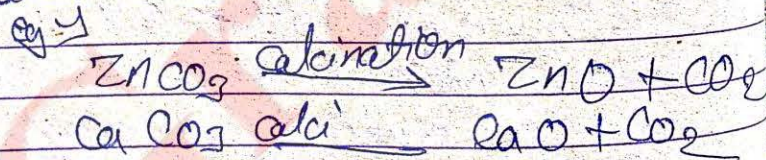 eg →
ZnCO₃ calcination → ZnO + CO₂
Ca CO₃ calci CaO + CO₂